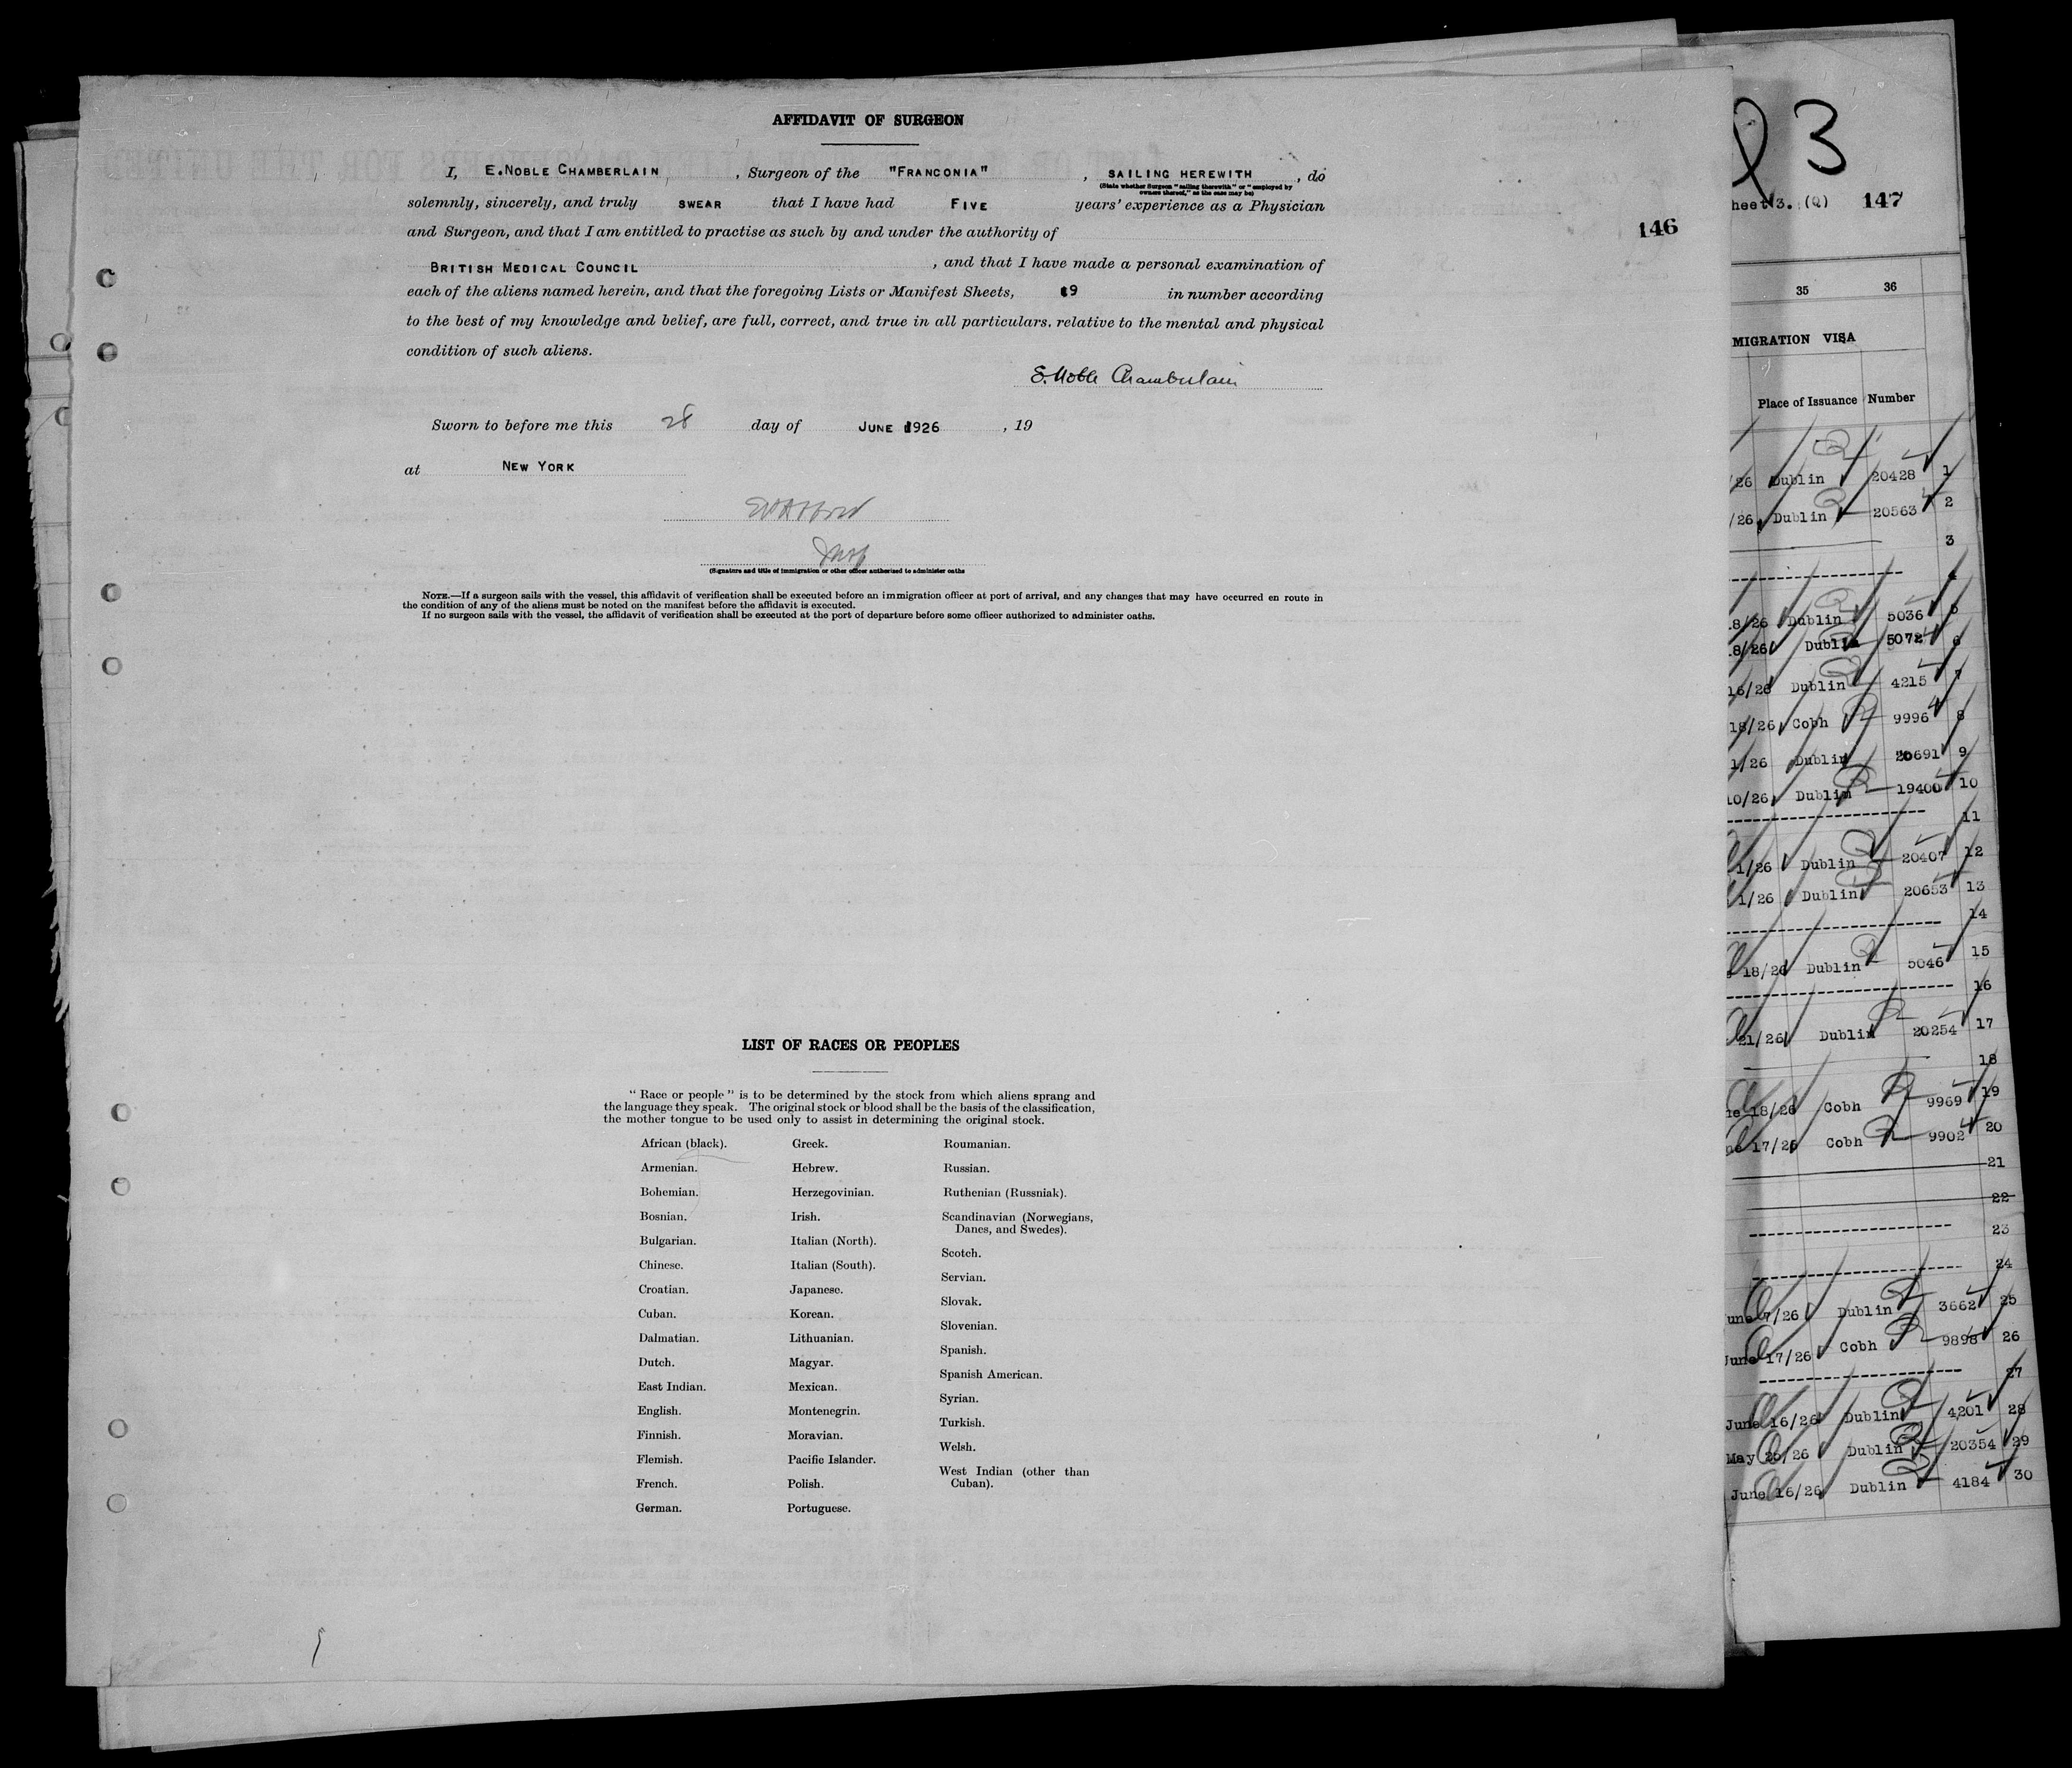 AFFIDAVIT OF SURGEON
I, E.NOBLE CHAMBERLAIN, , Surgeon of the "FRANCONIA" , SAILING HEREWITH , do
(State whether Surgeon "sailing therewith" or "employed by
owners thereof," as the case may be)
solemnly, sincerely, and truly SWEAR that I have had FIVE years' experience as a Physician
and Surgeon, and that I am entitled to practise as such by and under the authority of
BRITISH MEDICAL COUNCIL , and that I have made a personal examination of
each of the aliens named herein, and that the foregoing Lists or Manifest Sheets, 9 in number according
to the best of my knowledge and belief, are full, correct, and true in all particulars. relative to the mental and physical
condition of such aliens.
E. Noble Chamberlain
Sworn to before me this 28 day of JUNE 1926 , 19
at NEW YORK
Insp
(Signature and title of immigration or other officer authorized to administer oaths
NOTE.—If a surgeon sails with the vessel, this affidavit of verification shall be executed before an immigration officer at port of arrival, and any changes that may have occurred en route in
the condition of any of the aliens must be noted on the manifest before the affidavit is executed.
If no surgeon sails with the vessel, the affidavit of verification shall be executed at the port of departure before some officer authorized to administer oaths.
146
LIST OF RACES OR PEOPLES
" Race or people " is to be determined by the stock from which aliens sprang and
the language they speak. The original stock or blood shall be the basis of the classification,
the mother tongue to be used only to assist in determining the original stock.
African (black).
Armenian.
Bohemian.
Bosnian.
Bulgarian.
Chinese.
Croatian.
Cuban.
Dalmatian.
Dutch.
East Indian.
English.
Finnish.
Flemish.
French.
German.
Greek.
Hebrew.
Herzegovinian.
Irish.
Italian (North).
Italian (South).
Japanese.
Korean.
Lithuanian.
Magyar.
Mexican.
Montenegrin.
Moravian.
Pacific Islander.
Polish.
Portuguese.
Roumanian.
Russian.
Ruthenian (Russniak).
Scandinavian (Norwegians,
Danes, and Swedes).
Scotch.
Servian.
Slovak.
Slovenian.
Spanish.
Spanish American.
Syrian.
Turkish.
Welsh.
West Indian (other than
Cuban).
3
heet 3. (Q) 147
35 36
MIGRATION VISA
Place of Issuance Number
/26 Dublin 20428 1
/26 Dublin 20563 2
3
4
8/26 Dublin 5036 5
8/26 Dublin 5072 6
16/26 Dublin 4215 7
18/26 Cobh 9996 8
1/26 Dublin 20691 9
10/26 Dublin 19400 10
11
1/26 Dublin 20407 12
1/26 Dublin 20653 13
14
18/26 Dublin 5046 15
16
21/26 Dublin 20254 17
18
ne 18/26 Cobh 9969 19
ne 17/26 Cobh 9902 20
21
22
23
24
une 7/26 Dublin 3662 25
June 17/26 Cobh 9898 26
27
June 16/26 Dublin 4201 28
May 26/26 Dublin 20354 29
June 16/26 Dublin 4184 30